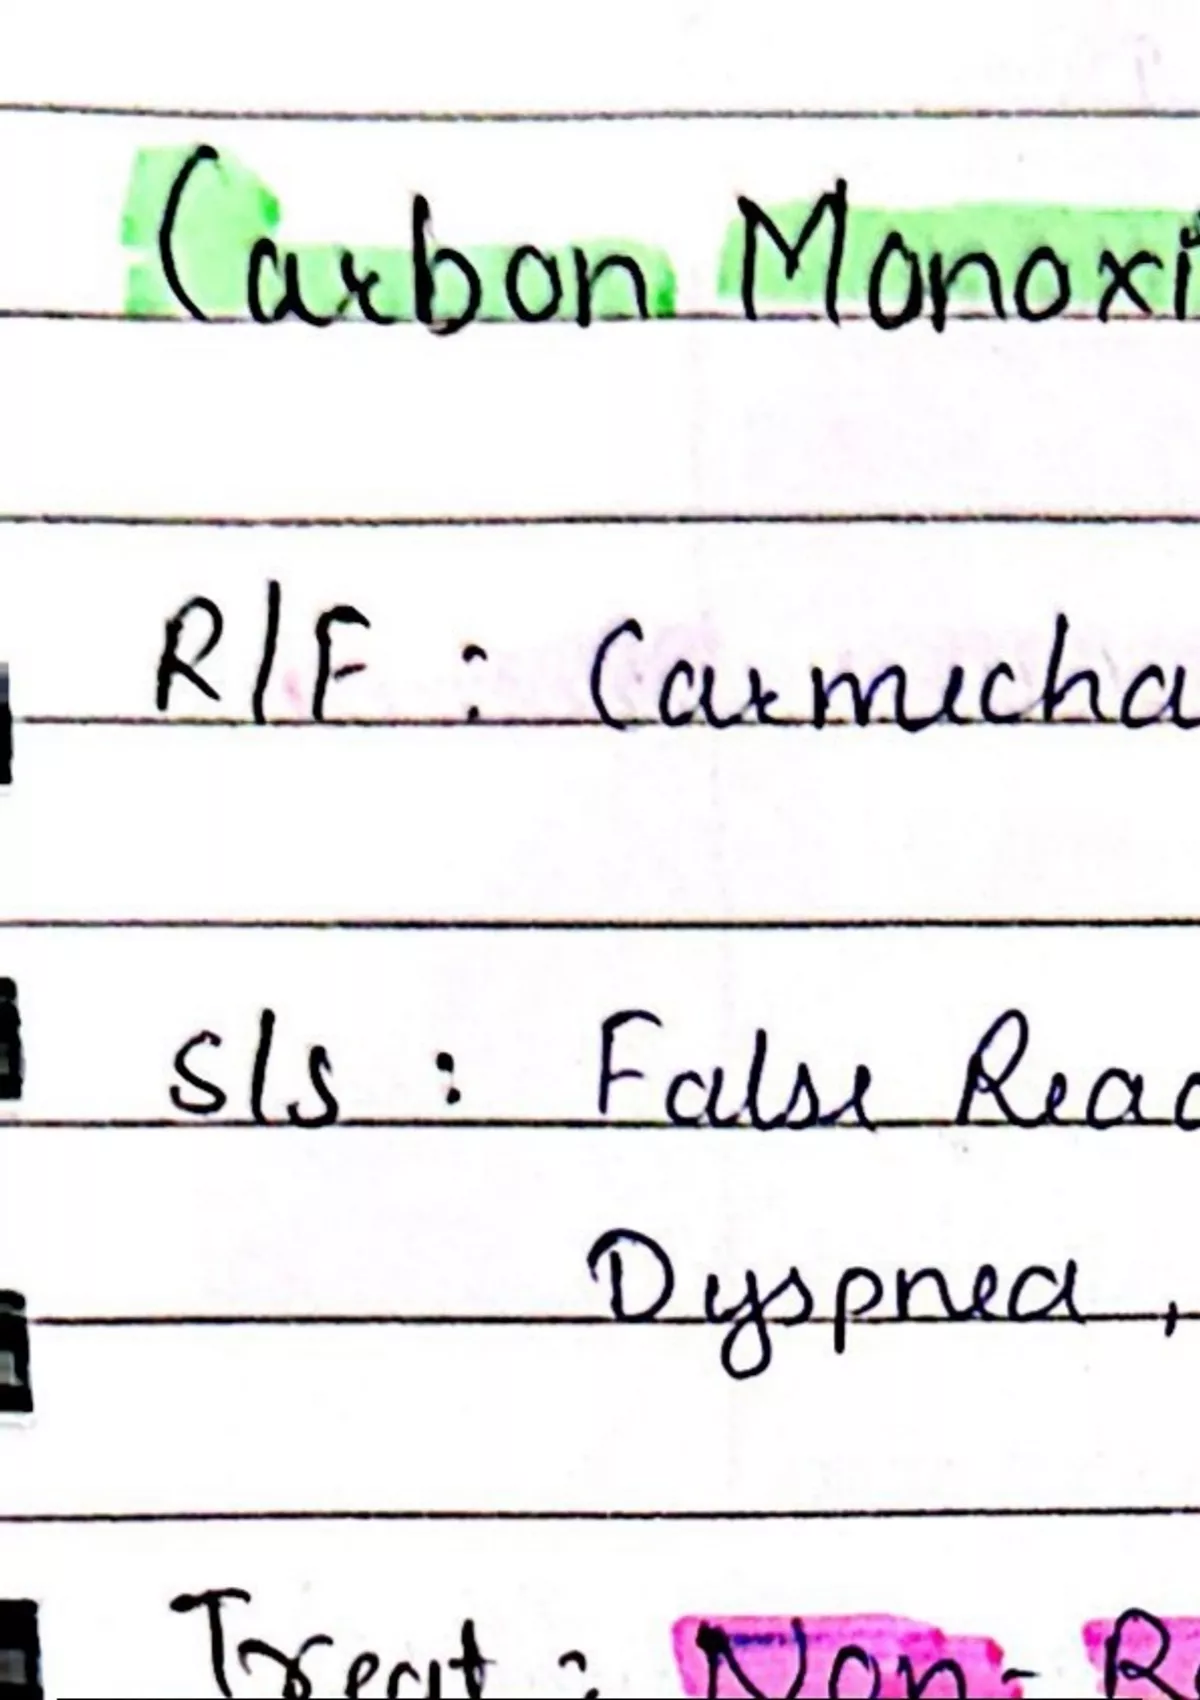 Carbon Monoxi
R/F : Carmecha
S/S : False Read
Dyspnea ,
Treat : Non- R